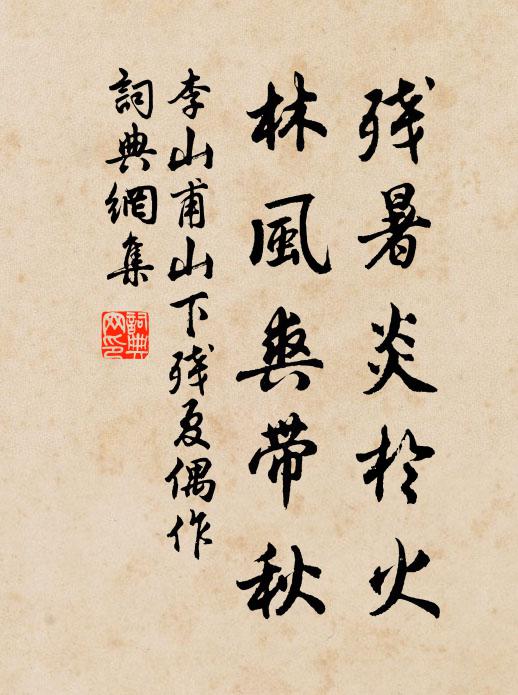 残暑炎於火
林風爽帶秋
李山甫山下残夏偶作
詞典網集
詞典网印